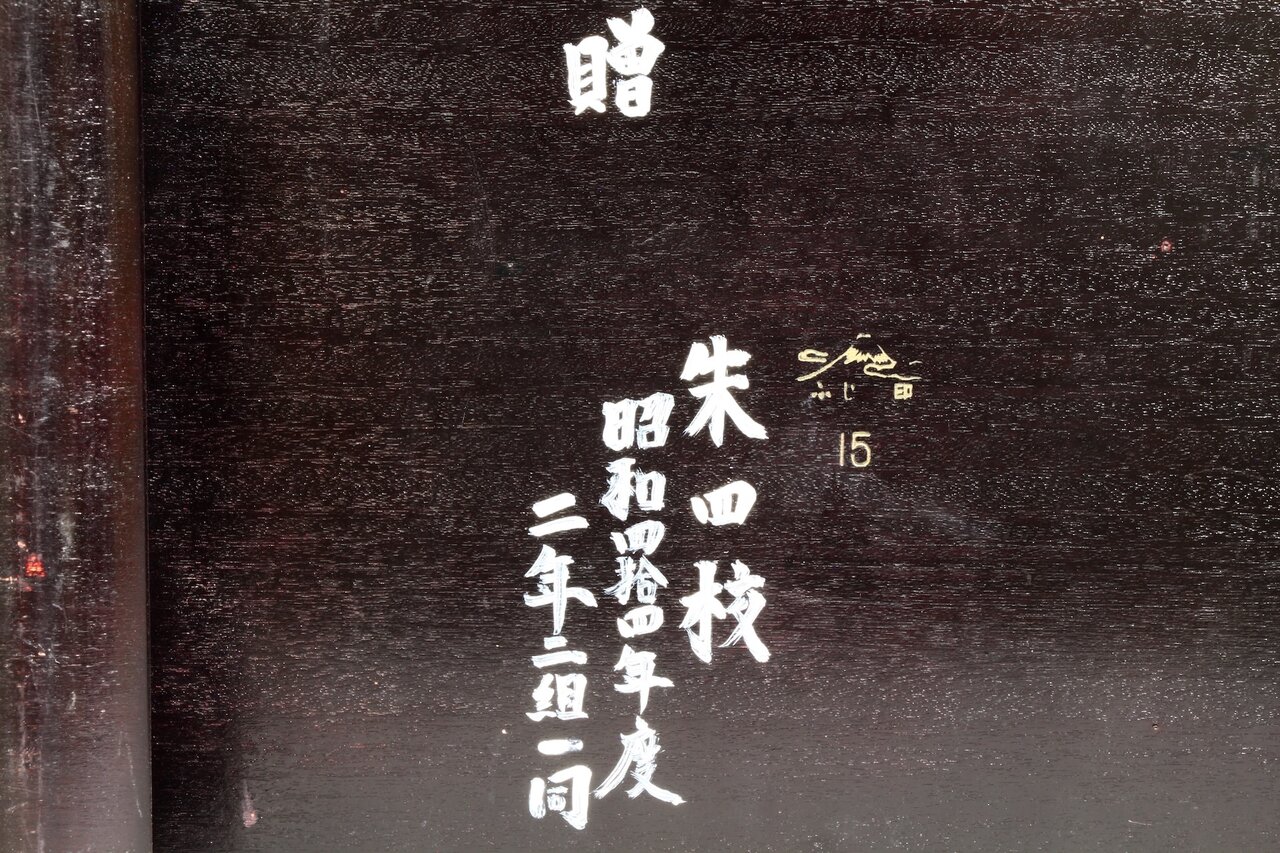 贈
朱四枝
昭和四拾四年度
二年二組一同
ふじ印
15